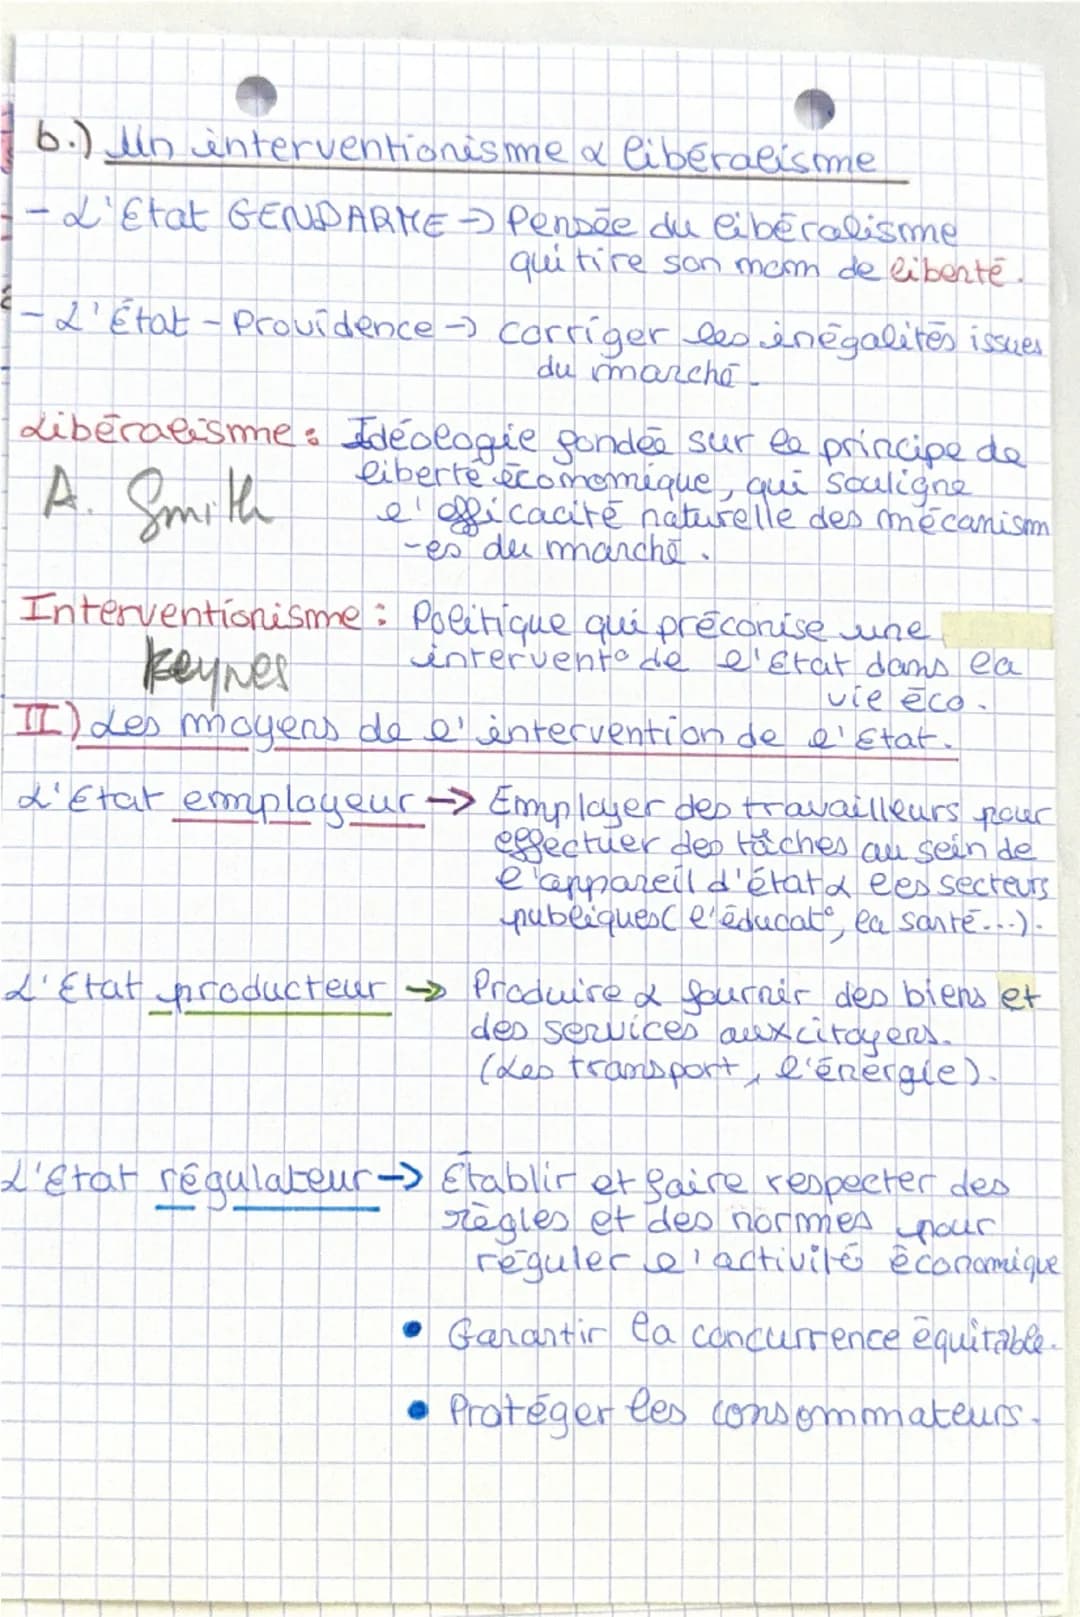 b.) Un interventionisme & libéralisme
- L'Etat GENDARME → Pensée du libéralisme
qui tire son mom de liberté.
- L'État - Providence → corriger les inégalités issues
du marché.
Libéralisme : Idéologie fondée sur le principe de
liberté économique, qui souligne
A. Smith
l'efficacité naturelle des mécanism
-es du marché.
Interventionisme : Politique qui préconise une
intervent° de l'État dans la
Keynes
vie éco.
II) Les moyens de l'intervention de l'Etat.
L'Etat employeur → Employer des travailleurs pour
effectuer des tâches au sein de
l'appareil d'état & les secteurs
publiques (l'éducat°, la santé...).
L'Etat producteur → Produire & fournir des biens et
des services aux citoyens.
(Les transport, l'énergie).
L'Etat régulateur → Établir et faire respecter des
règles et des normes pour
réguler l'activité économique
• Garantir la concurrence équitable.
• Protéger les consommateurs.